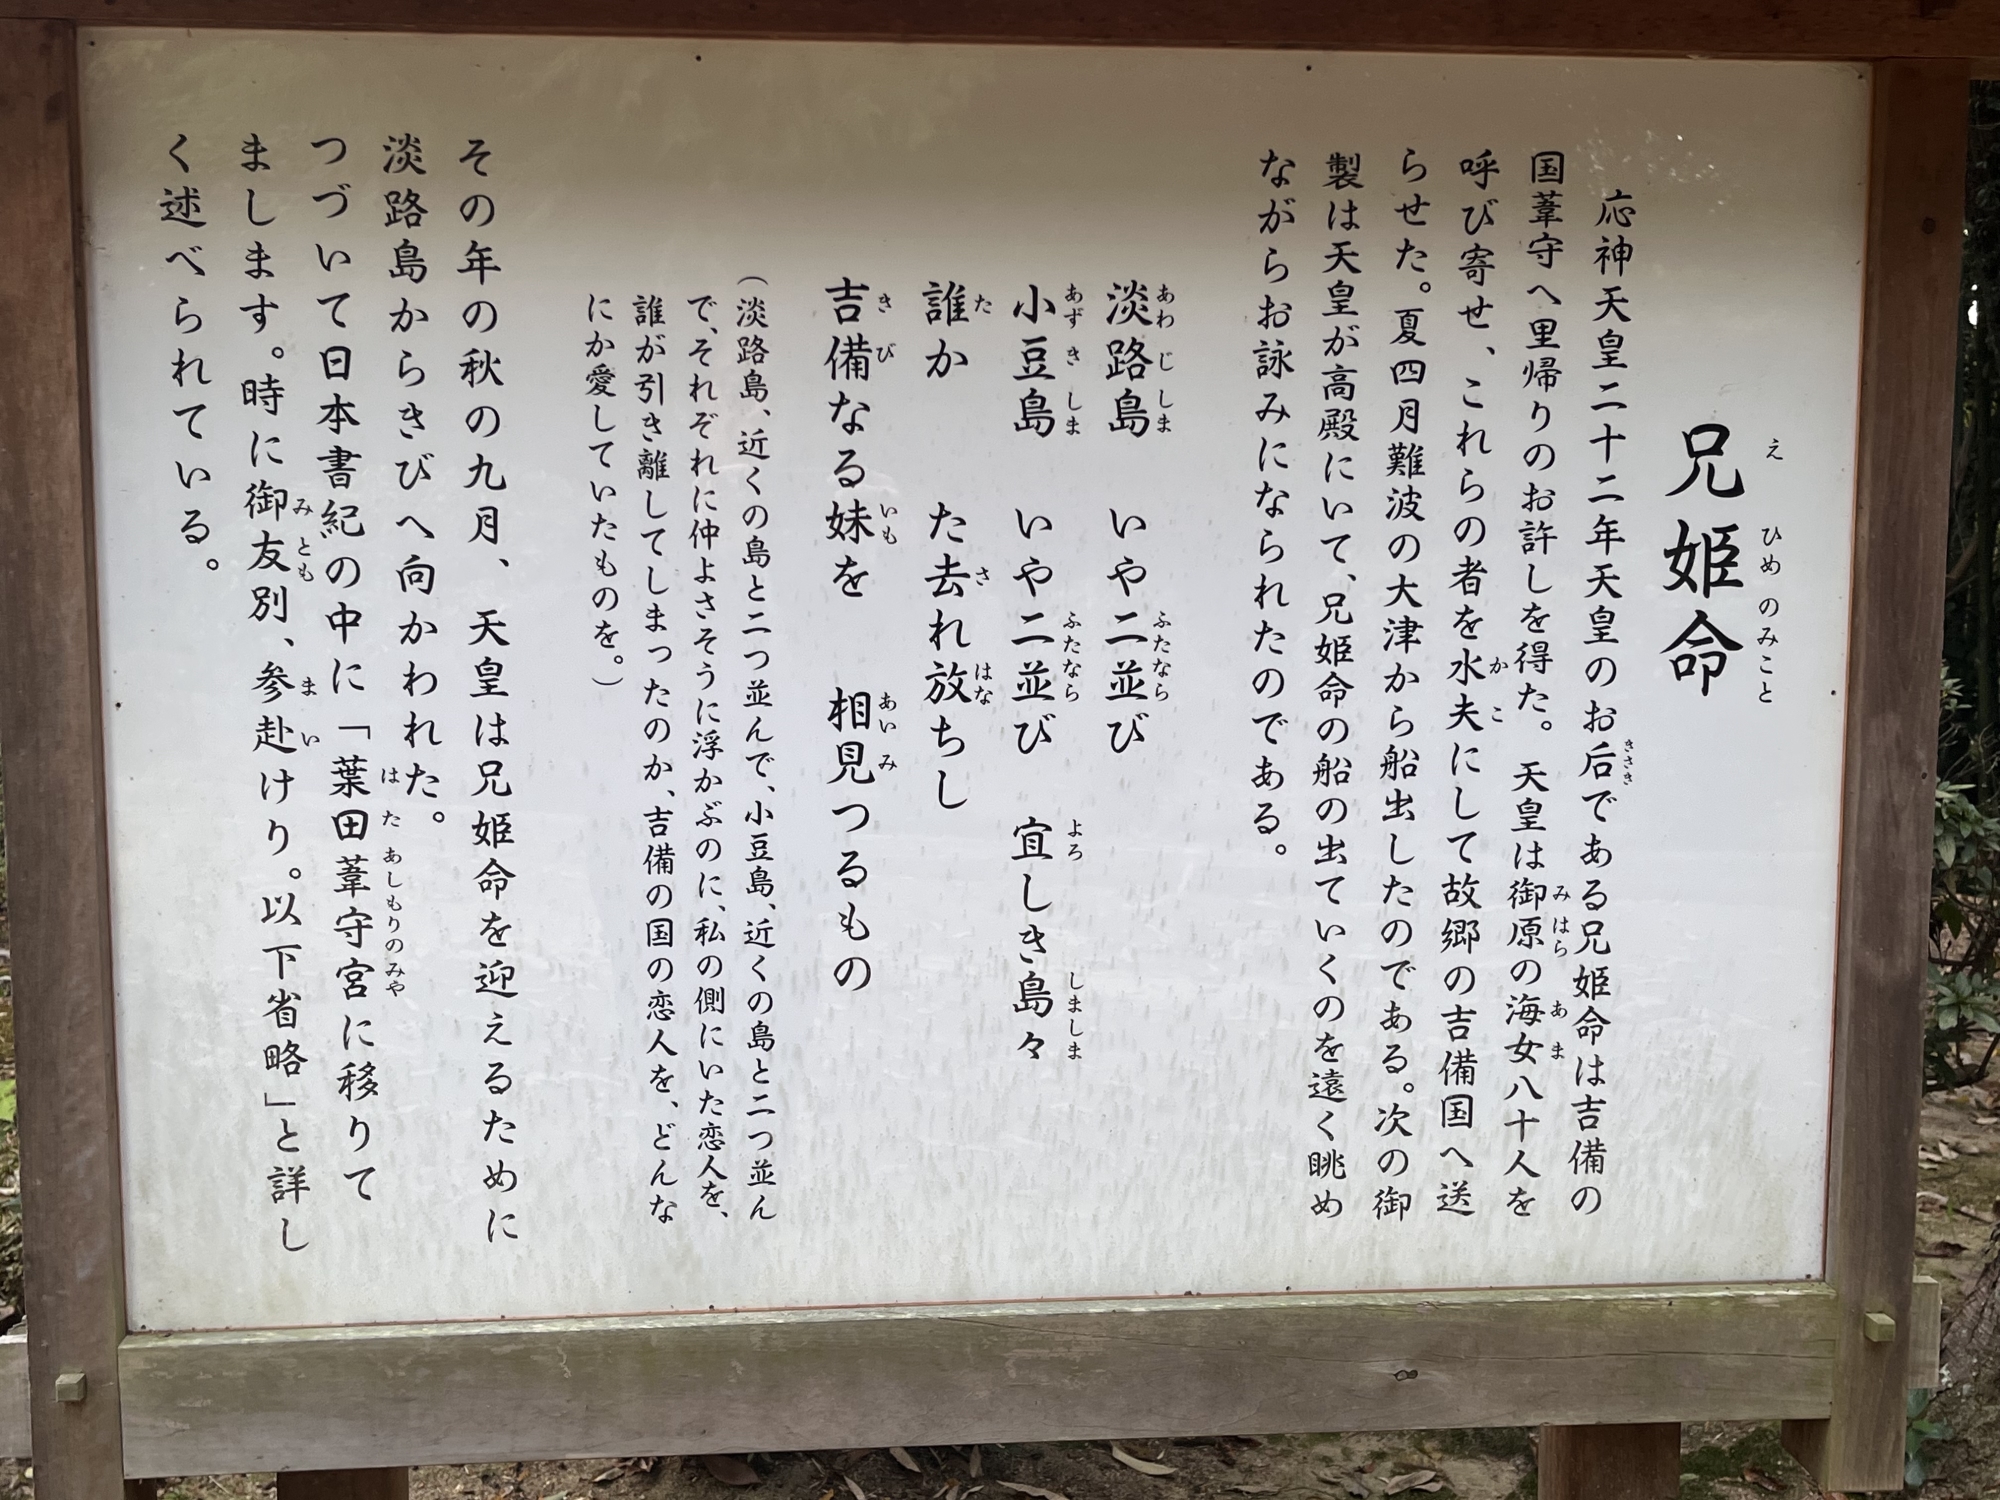 兄姫命
えひめのみこと
応神天皇二十二年天皇のお后である兄姫命は吉備の
きさき
国葦守へ里帰りのお許しを得た。天皇は御原の海女八十人を
みはら あま
呼び寄せ、これらの者を水夫にして故郷の吉備国へ送
かこ
らせた。夏四月難波の大津から船出したのである。次の御
製は天皇が高殿にいて、兄姫命の船の出ていくのを遠く眺め
ながらお詠みになられたのである。
淡路島 いや二並び
あわじしま ふたなら
小豆島 いや二並び 宜しき島々
あずきしま ふたなら よろ しましま
誰か た去れ放ちし
た さ はな
吉備なる妹を 相見つるもの
きび いも あいみ
(淡路島、近くの島と二つ並んで、小豆島、近くの島と二つ並ん
で、それぞれに仲よさそうに浮かぶのに、私の側にいた恋人を、
誰が引き離してしまったのか、吉備の国の恋人を、どんな
にか愛していたものを。)
その年の秋の九月、天皇は兄姫命を迎えるために
淡路島からきびへ向かわれた。
つづいて日本書紀の中に「葉田葦守宮に移りて
はたあしもりのみや
まします。時に御友別、参赴けり。以下省略」と詳し
みとも まい
く述べられている。